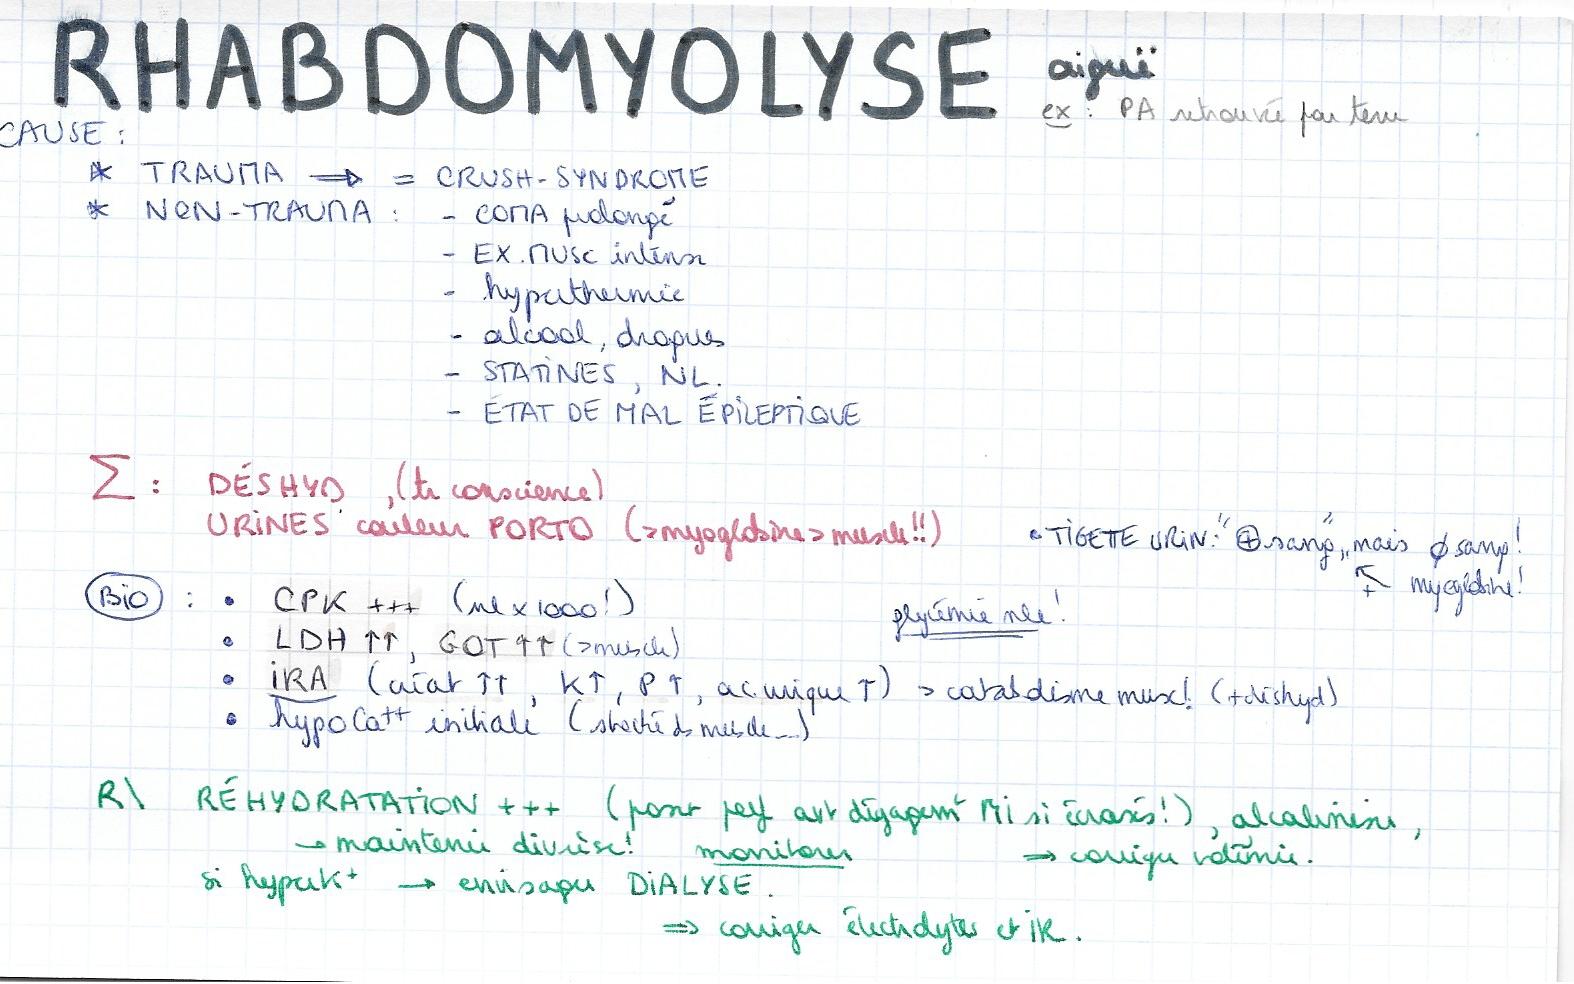 RHABDOMYOLYSE aiguë
ex : PA retrouvée par terre
CAUSE :
* TRAUMA ⇒ = CRUSH-SYNDROME
* NON-TRAUMA : - COMA prolongé
- EX. MUSC intense
- hyperthermie
- alcool, drogues
- STATINES, NL.
- ÉTAT DE MAL ÉPILEPTIQUE
Σ : DÉSHYD, (tr conscience)
URINES couleur PORTO (>myoglobine > muscle!!)
• TIGETTE URIN: "⊕ sang", mais ∅ sang!
myoglobine!
BIO : • CPK +++ (nl x 1000!)
glycémie nle!
• LDH ↑↑, GOT ↑↑ (>muscle)
• IRA (créat ↑↑, K↑, P↑, ac. urique ↑) > catabolisme musc! (+déshyd)
• hypoCa++ initiale (stocké ds muscle...)
R\ RÉHYDRATATION +++ (poser perf avt dégagemt MI si écrasés!), alcaliniser,
→ maintenir diurèse! monitorer ⇒ corriger volémie.
si hyperK+ → envisager DIALYSE.
⇒ corriger électrolytes et IR.